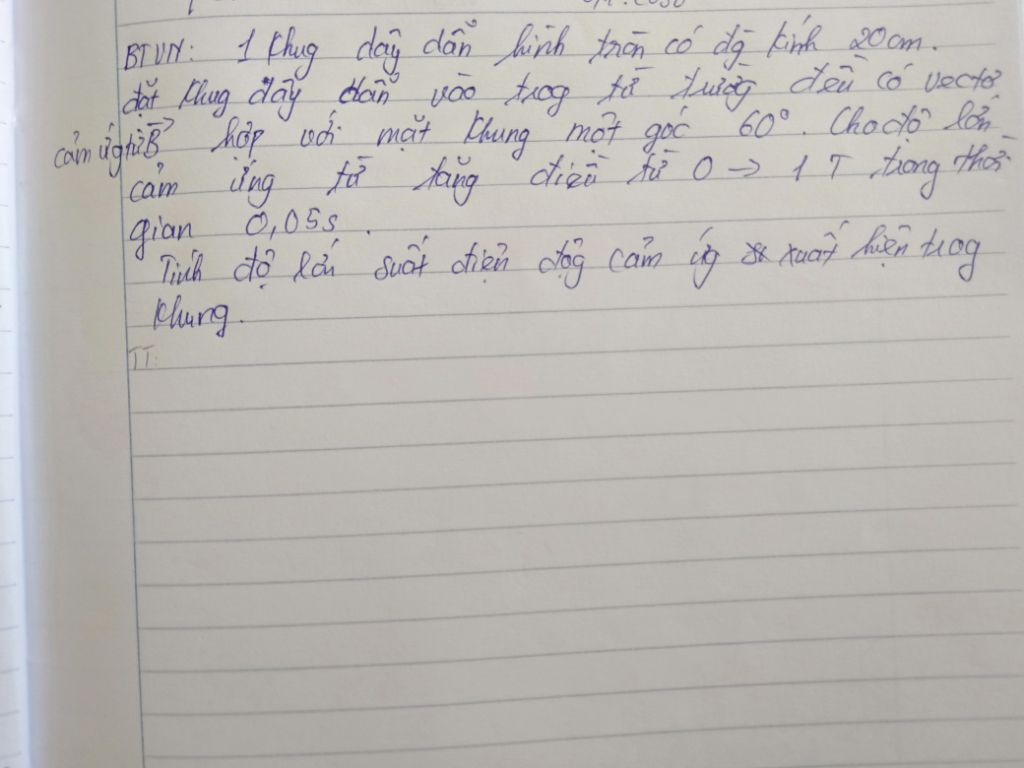 BTVN: 1 khug dây dẫn hình tròn có đg kính 20cm.
đặt khug dây dẫn vào trog từ trường đều có vectơ
cảm ứg từ B hợp với mặt khung một góc 60°. Cho độ lớn
cảm ứng từ tăng điều từ 0 → 1 T trong thời
gian 0,05s.
Tính độ lớn suất điện độg cảm ứg xuất hiện trog
khung.
TT: